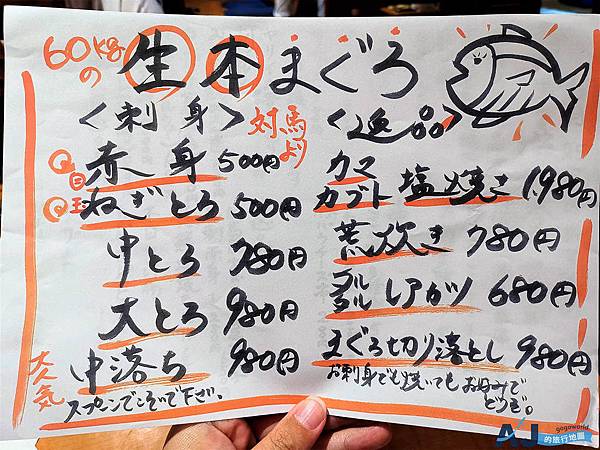 60kgの 生本まぐろ
<刺身> 対馬より
赤身 500円
ねぎとろ 500円
中とろ 780円
大とろ 980円
大人気 中落ち 980円
スプーンでこそいで下さい。
<逸品>
カマ
カブト 塩焼き 1,980円
荒炊き 780円
タルタル レアカツ 680円
まぐろ切り落とし 980円
お刺身でも焼いてもお好みで
どうぞ。
gogoworld
AJ的旅行地圖